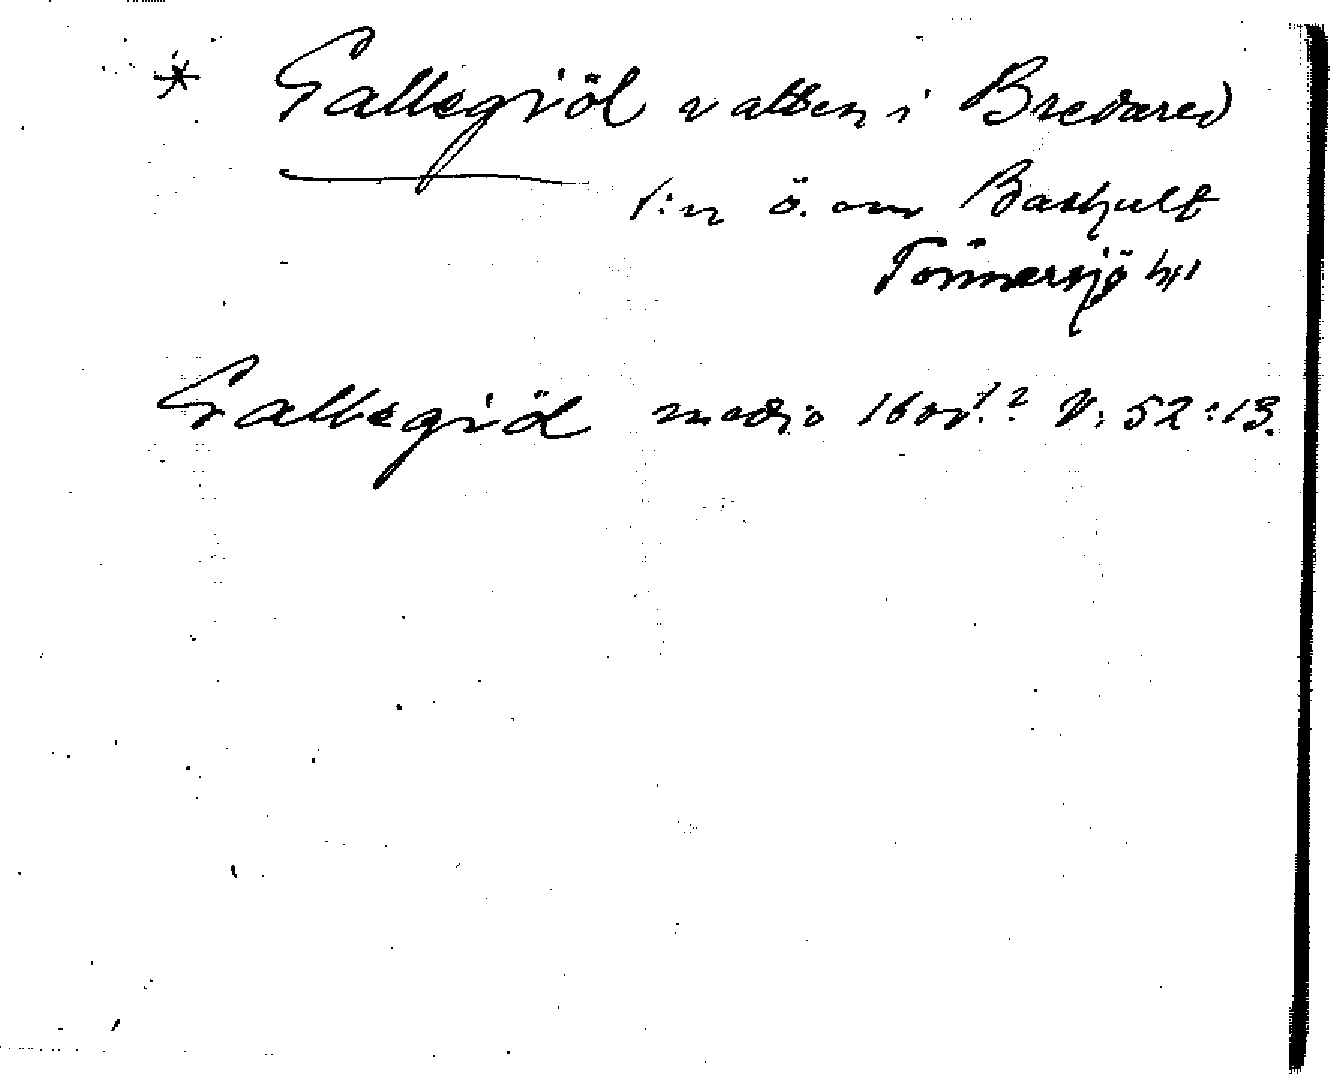 * Gallegiöl vatten i Bredared
s:n ö. om Bashult
Tönnersjö hd
Gallegiöl medio 1600t.? V: 52:13.